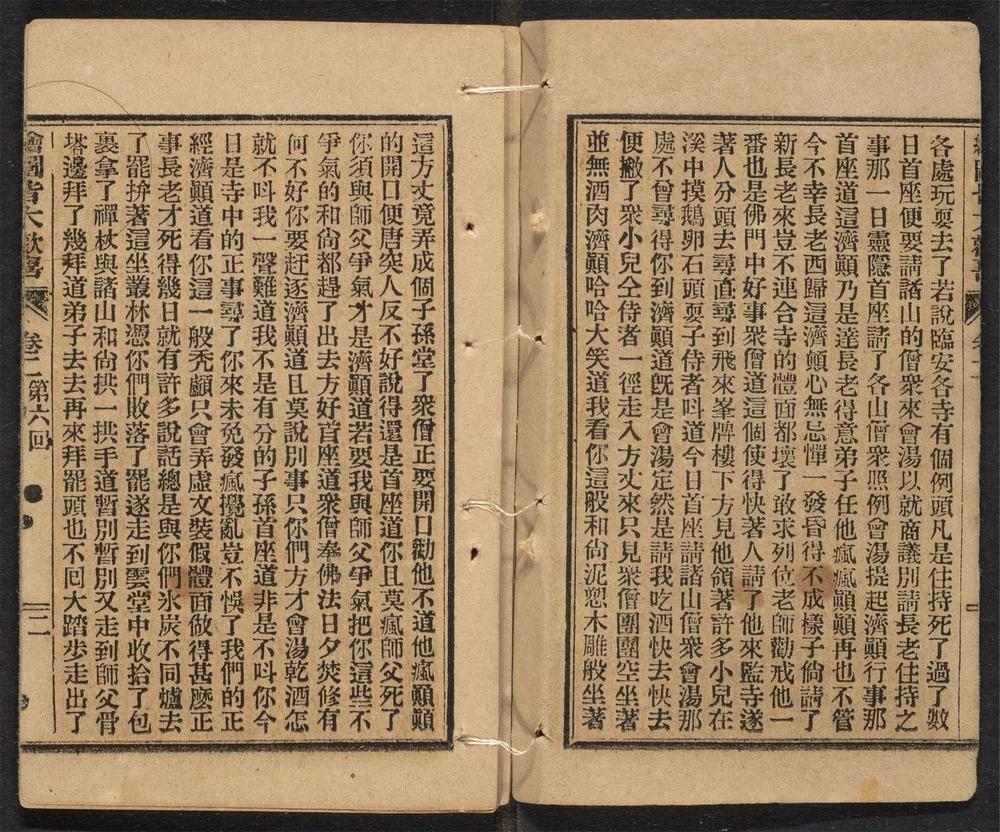 各處玩耍去了若說臨安各寺有個例頭凡是住持死了過了數
日首座便要請諸山的僧衆來會湯以就商議別請長老住持之
事那一日靈隱首座請了各山僧衆照例會湯提起濟顚行事那
首座道這濟顚乃是達長老得意弟子任他瘋瘋顚顚再也不管
今不幸長老西歸這濟顚心無忌憚一發昏得不成樣子倘請了
新長老來豈不連合寺的體面都壞了敢求列位老師勸戒他一
番也是佛門中好事衆僧道這個使得快著人請了他來監寺遂
著人分頭去尋直尋到飛來峯牌樓下方見他領著許多小兒在
溪中摸鵝卵石頭耍子侍者呌道今日首座請諸山僧衆會湯那
處不曾尋得你到濟顚道旣是會湯定然是請我吃酒快去快去
便撇了衆小兒仝侍者一徑走入方丈來只見衆僧團團空坐著
並無酒肉濟顚哈哈大笑道我看你這般和尙泥塑木雕般坐著
這方丈竟弄成個子孫堂了衆僧正要開口勸他不道他瘋顚顚
的開口便唐突人反不好說得還是首座道你且莫瘋師父死了
你須與師父爭氣才是濟顚道若要我與師父爭氣把你這些不
爭氣的和尙都趕了出去方好首座道衆僧奉佛法日夕焚修有
何不好你要赶逐濟顚道且莫說別事只你們方才會湯乾酒怎
就不呌我一聲難道我不是有分的子孫首座道非是不呌你今
日是寺中的正事尋了你來未免發瘋攪亂豈不悞了我們的正
經濟顚道看你這一般秃顱只會弄虛文裝假體面做得甚麼正
事長老才死得幾日就有許多說話總是與你們氷炭不同爐去
了罷拚著這坐叢林憑你們敗落了罷遂走到雲堂中收拾了包
裏拿了禪杖與諸山和尙拱一拱手道暫別暫別又走到師父骨
塔邊拜了幾拜道弟子去去再來拜罷頭也不囘大踏步走出了
繪圖皆大歡喜 卷二 第六回 二